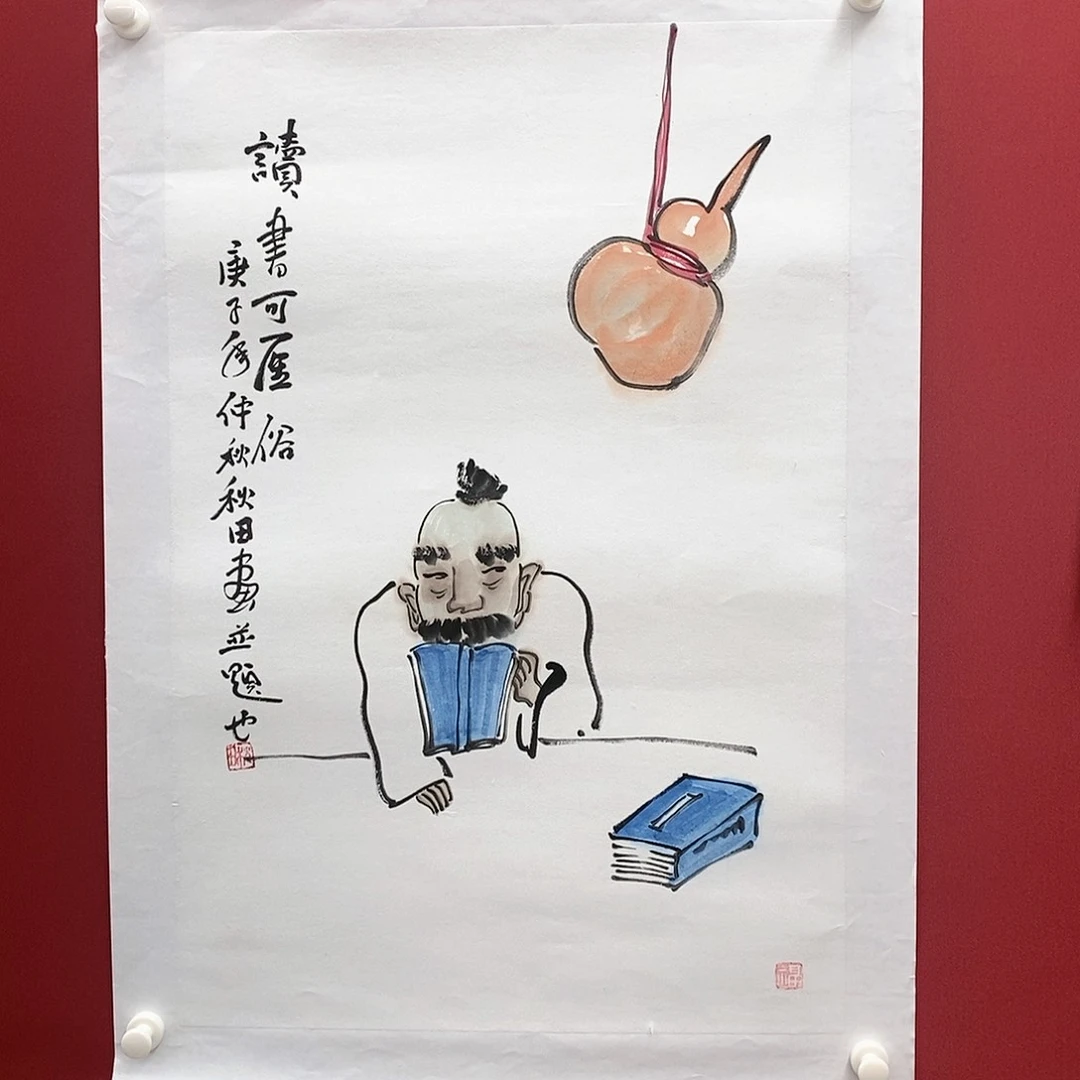 讀書可医俗
庚子年仲秋秋田畫並題也